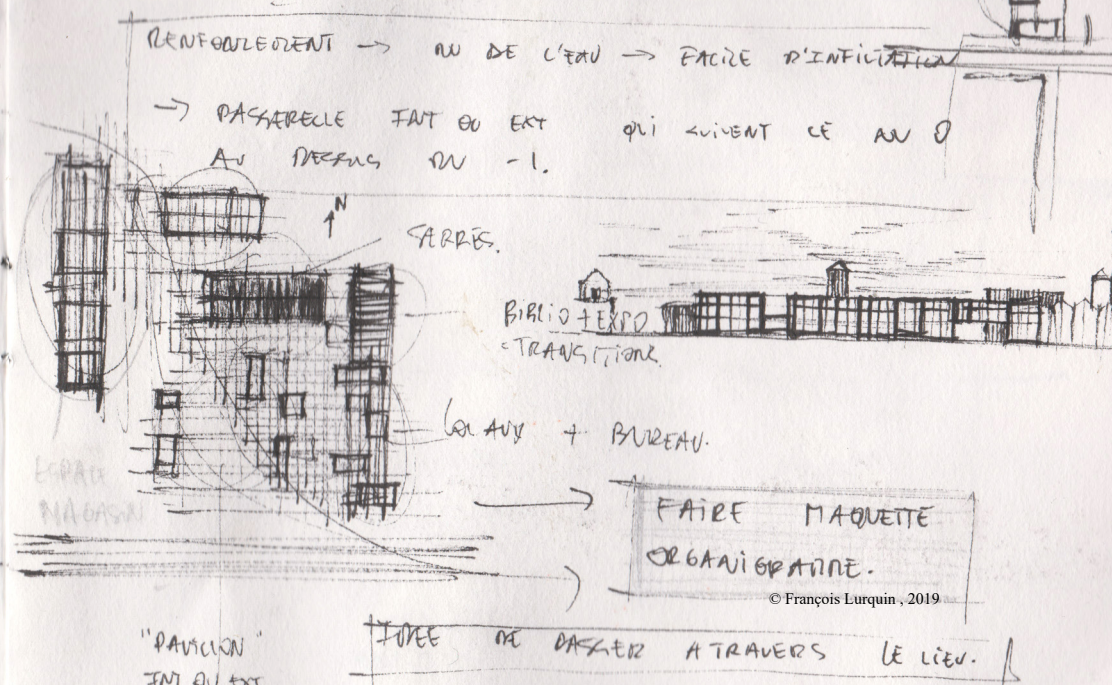 RENFONCEMENT → DU DE L'EAU → FACILE D'INFILTRATION
→ PASSERELLE INT OU EXT QUI SUIVENT CE AU 0
AU DESSUS DU -1.
N
SERRES.
BIBLIO + EXPO
TRANSITION.
LOCAUX + BUREAU.
ESPACE
MAGASIN
FAIRE MAQUETTE
ORGANIGRAMME.
© François Lurquin , 2019
IDEE DE PASSER A TRAVERS LE LIEU.
"PAVILLON"
INT OU EXT